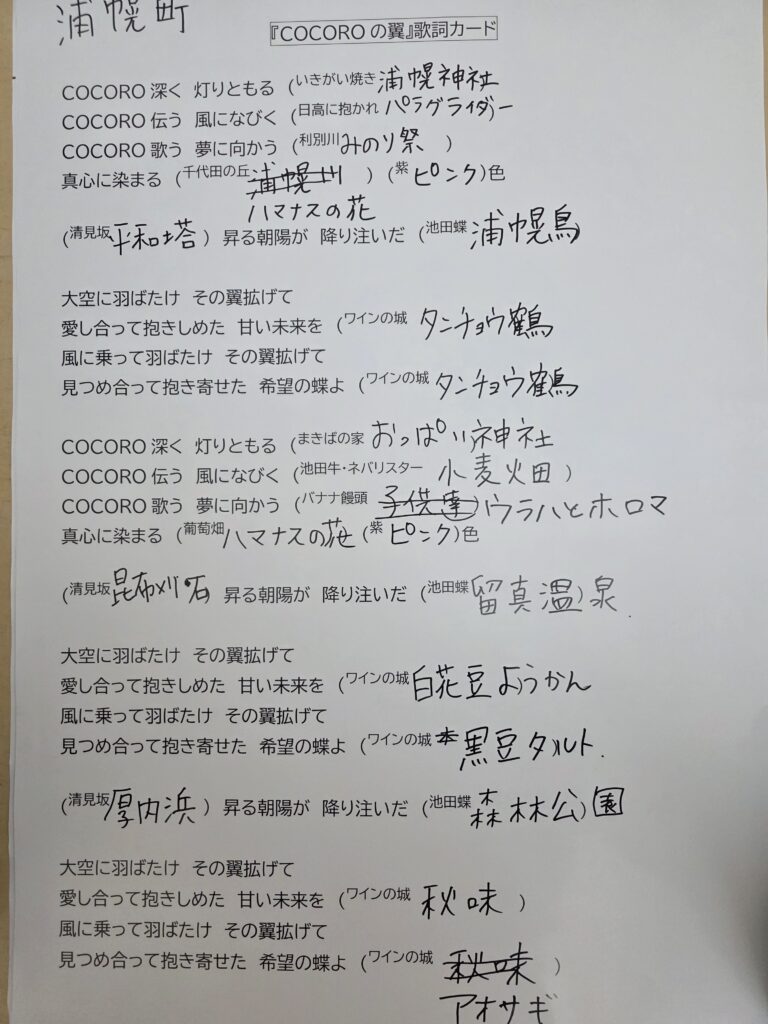 浦幌町
『COCOROの翼』歌詞カード
COCORO 深く 灯りともる (いきがい焼き 浦幌神社
COCORO 伝う 風になびく (日高に抱かれ パラグライダー)
COCORO 歌う 夢に向かう (利別川 みのり祭 )
真心に染まる (千代田の丘 浦幌川 ) (紫 ピンク)色
ハマナスの花
(清見坂 平和塔 ) 昇る朝陽が 降り注いだ (池田蝶 浦幌鳥)
大空に羽ばたけ その翼拡げて
愛し合って抱きしめた 甘い未来を (ワインの城 タンチョウ鶴
風に乗って羽ばたけ その翼拡げて
見つめ合って抱き寄せた 希望の蝶よ (ワインの城 タンチョウ鶴
COCORO 深く 灯りともる (まきばの家 おっぱい神社
COCORO 伝う 風になびく (池田牛・ネバリスター 小麦畑 )
COCORO 歌う 夢に向かう (バナナ饅頭 子供達) ウラハとホロマ
真心に染まる (葡萄畑 ハマナスの花 (紫 ピンク)色
(清見坂 昆布刈石 昇る朝陽が 降り注いだ (池田蝶 留真温)泉
大空に羽ばたけ その翼拡げて
愛し合って抱きしめた 甘い未来を (ワインの城 白花豆ようかん
風に乗って羽ばたけ その翼拡げて
見つめ合って抱き寄せた 希望の蝶よ (ワインの城 黒豆タルト
(清見坂 厚内浜 ) 昇る朝陽が 降り注いだ (池田蝶 森林公)園
大空に羽ばたけ その翼拡げて
愛し合って抱きしめた 甘い未来を (ワインの城 秋味 )
風に乗って羽ばたけ その翼拡げて
見つめ合って抱き寄せた 希望の蝶よ (ワインの城 秋味 )
アオサギ